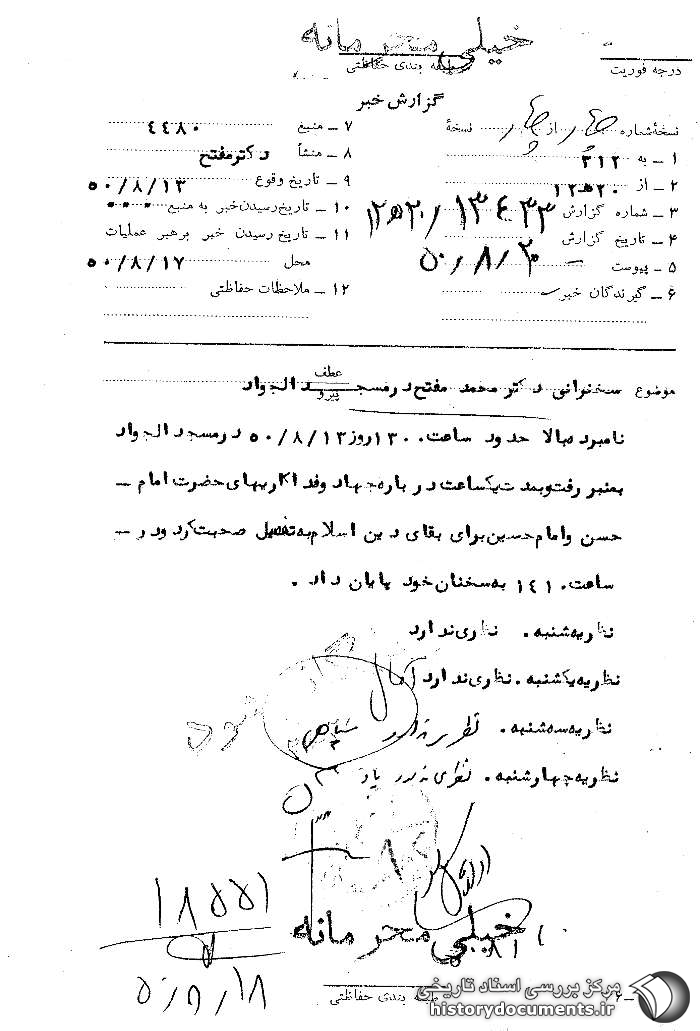 خیلی محرمانه
درجه فوریت
طبقه بندی حفاظتی
گزارش خبر
نسخهٔ شماره چهار از چهار نسخهٔ
۱ ـ به ۳۱۲
۲ ـ از ۲۰ ه‍ ۱۲
۳ ـ شماره گزارش ۱۳۴۳۳ / ۲۰ ه‍ ۱۲
۴ ـ تاریخ گزارش ۵۰/۸/۲۰
۵ ـ پیوست ـ
۶ ـ گیرندگان خبر
۷ ـ منبع ۴۴۸۰
۸ ـ منشأ دکتر مفتح
۹ ـ تاریخ وقوع ۵۰/۸/۱۳
۱۰ ـ تاریخ رسیدن خبر به منبع
۱۱ ـ تاریخ رسیدن خبر برهبر عملیات
محل ۵۰/۸/۱۷
۱۲ ـ ملاحظات حفاظتی
موضوع سخنرانی دکتر محمد مفتح در مسجد الجواد
عطف
پیرو
نامبرده بالا حدود ساعت ۱۳۰۰ روز ۵۰/۸/۱۳ در مسجد الجواد
بمنبر رفت و بمدت یکساعت در باره جهاد و فداکاریهای حضرت امام ـ
حسن و امام حسین برای بقای دین اسلام به تفصیل صحبت کرد و در ـ
ساعت ۱۴۱۰ به سخنان خود پایان داد .
نظریه شنبه . نظری ندارد
نظریه یکشنبه . نظری ندارد
نظریه سه شنبه . نظری ندارد
نظریه چهارشنبه . نظری ندارد
۱۸۵۵۱
۱۸
خیلی محرمانه
طبقه بندی حفاظتی
مرکز بررسی اسناد تاریخی
historydocuments.ir